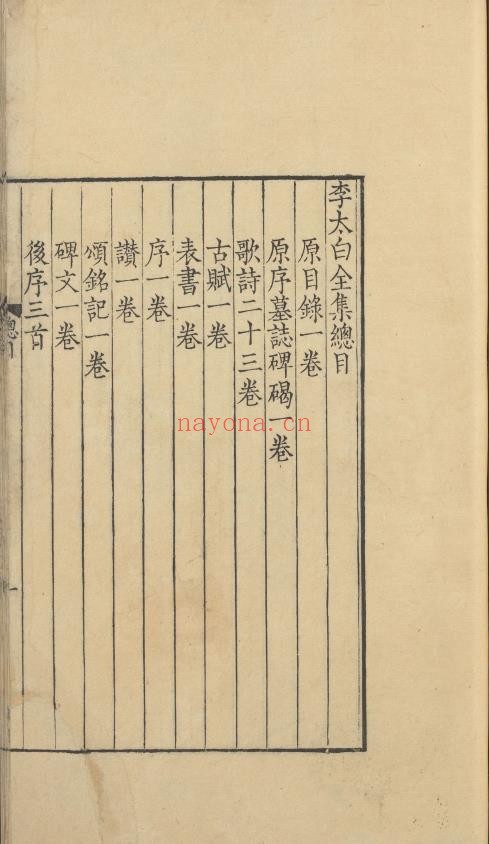 李太白全集總目
原目錄一卷
原序墓誌碑碣一卷
歌詩二十三卷
古賦一卷
表書一卷
序一卷
讚一卷
頌銘記一卷
碑文一卷
後序三首
nayona.cn